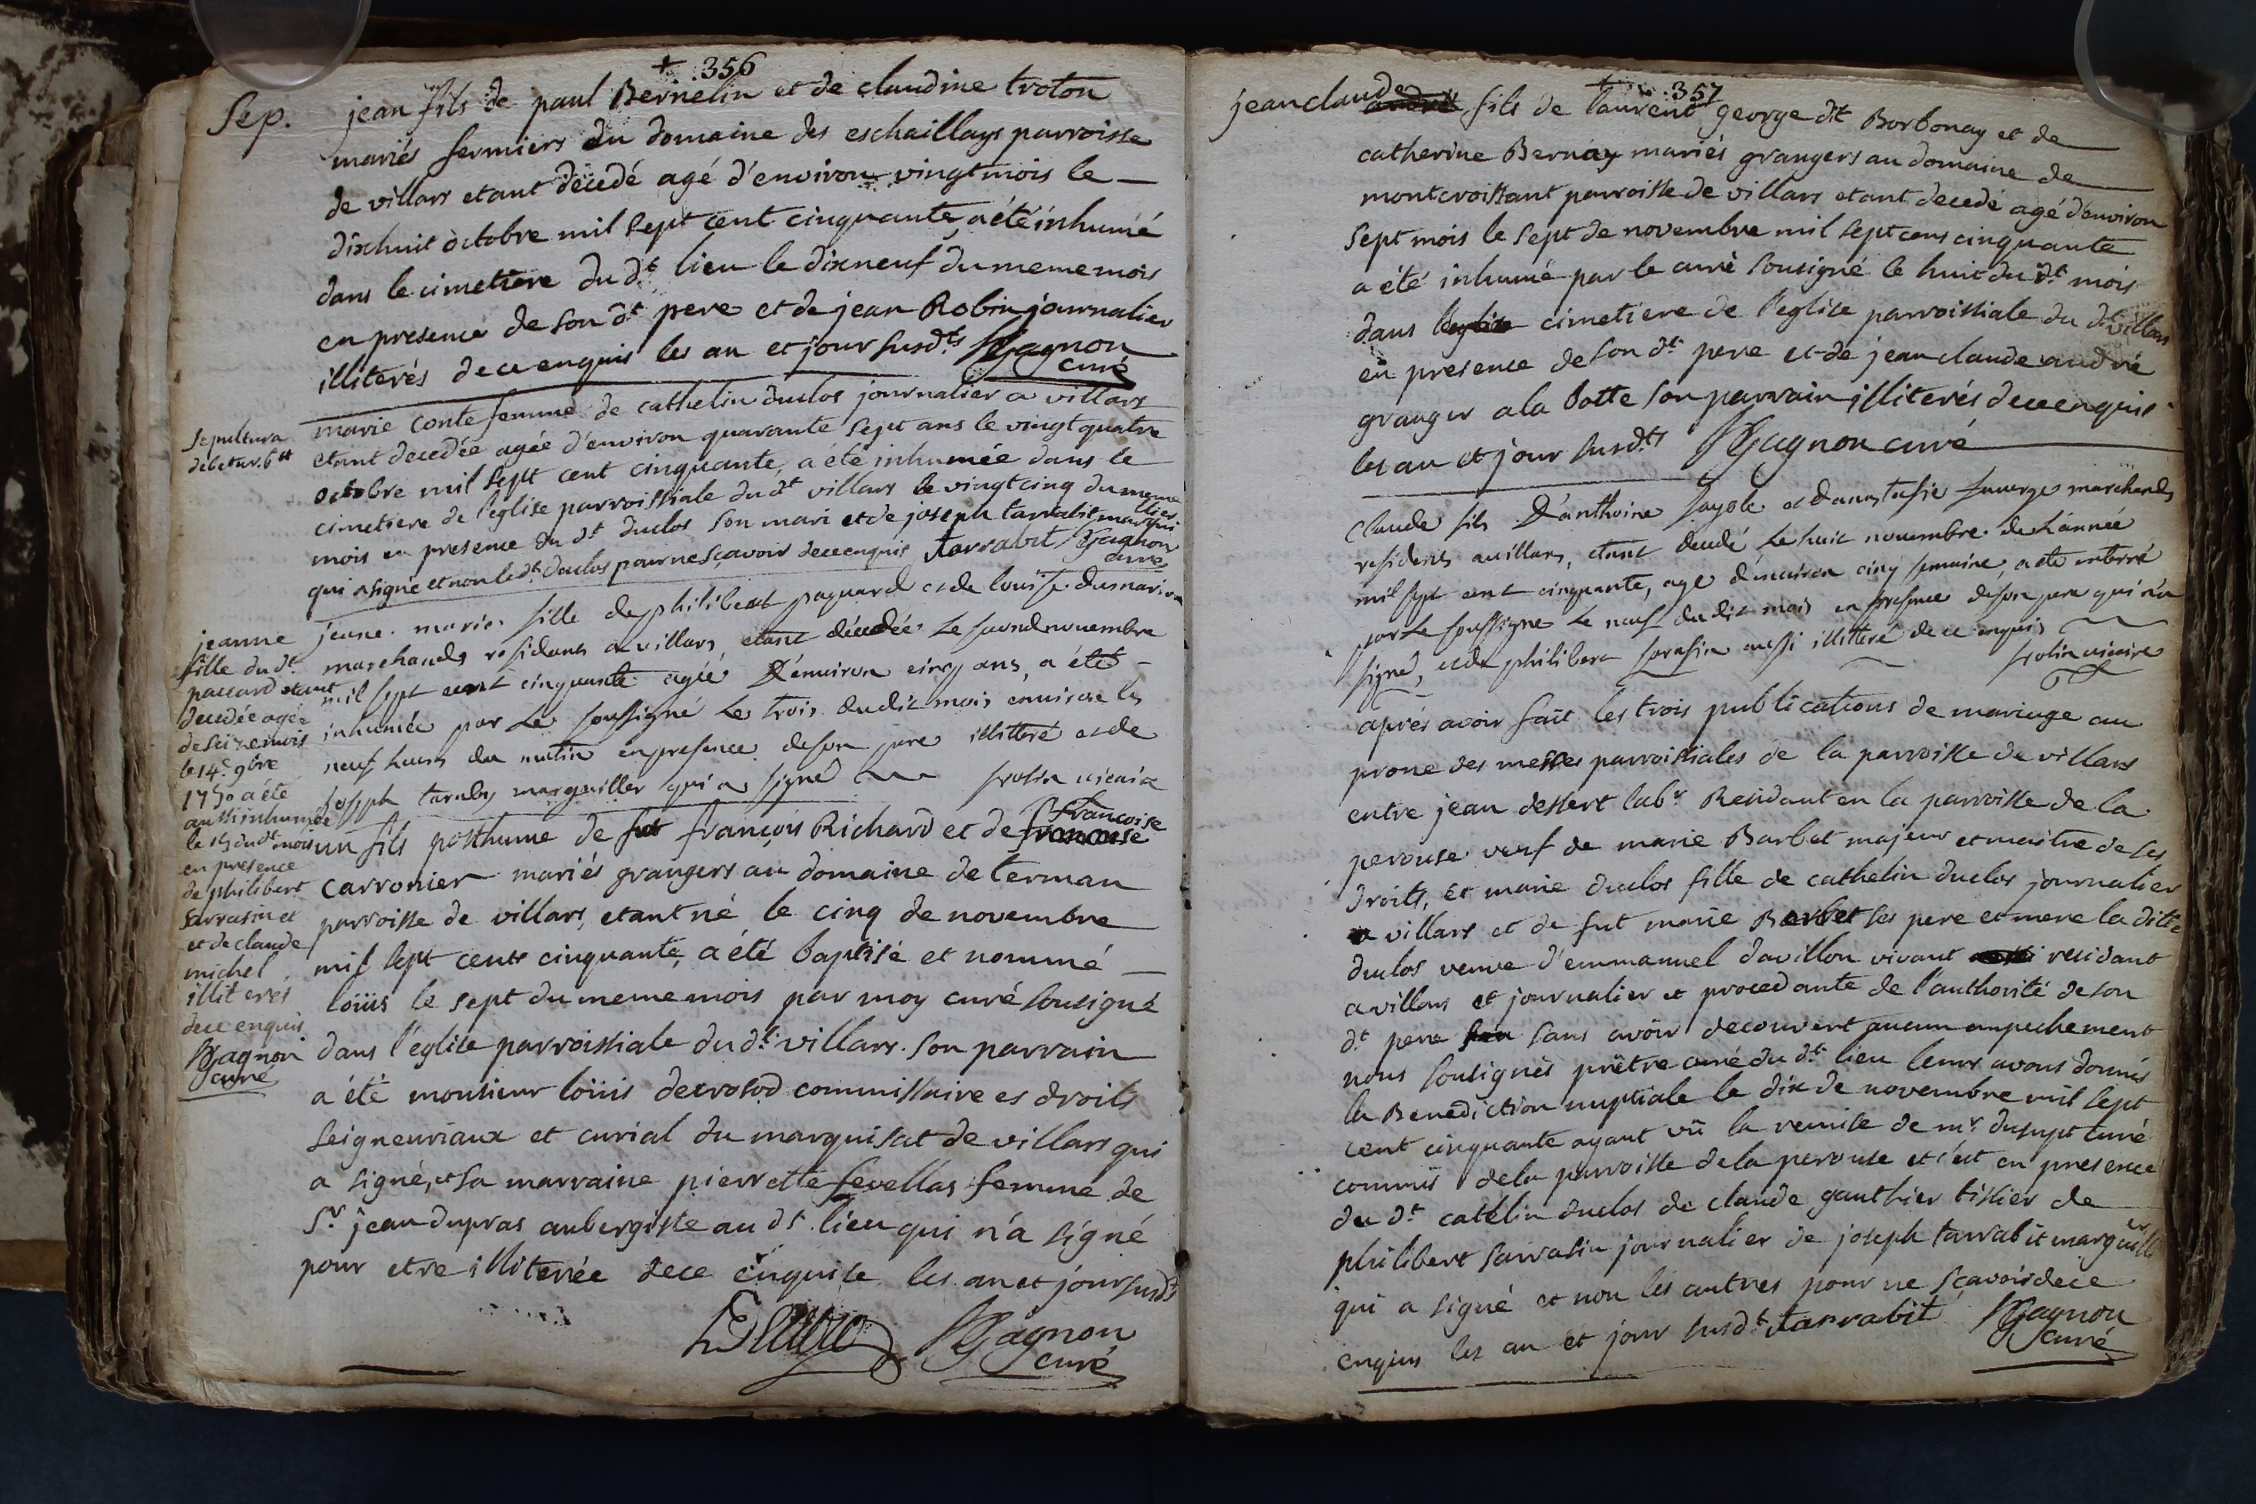 356
Sep.
jean fils de paul Bernelin et de claudine troton
mariés fermiers du domaine des eschaillays parroisse
de villars etant decedé agé d'environ vingt mois le
dixhuit octobre mil sept cent cinquante, a été inhumé
dans le cimetiere du dt. lieu le dixneuf du meme mois
en presence de son dt pere et de jean Robin journalier
illiterés de ce enquis les an et jour susdts Gagnon
curé
Sepultura
debetur. 6tt
marie conte femme de cathelin duclos journalier a villars
etant decedée agée d'environ quarante sept ans le vingt quatre
octobre mil sept cent cinquante, a été inhumée dans le
cimetiere de l'eglise parroissiale du dt villars le vingt cinq du meme
mois en presence du dt duclos son mari et de joseph tarrabit marguillier
qui a signé et non le dt. duclos pour ne sçavoir de ce enquis Tarrabit Gagnon
curé
jeune marie fille de philibert paquard et de louise dumarion
marchands residants a villars, etant décedée le second novembre
mil sept cent cinquante agée d'environ cinq ans, a été
inhumée par le soussigné le trois dudit mois environ les
neuf heures du matin en presence de son pere illitteré et de
joseph taraby marguiller qui a signé frolin vicaire
jeanne
fille du dt
paccard etant
decedée agée
de seize mois
le 14e 9bre
1750 a été
aussi inhumée
le 15 du dt mois
en presence
de philibert
Sarrasin et
et de claude
michel
illiteres
de ce enquis
Gagnon
curé
un fils posthume de fut françois Richard et de françoise
françoise
carronier mariés grangers au domaine de terman
parroisse de villars, etant né le cinq de novembre
mil sept cent cinquante, a été baptisé et nommé
loüis le sept du meme mois par moy curé sousigné
dans l'église parroissiale du dt. villars. son parrain
a été monsieur loüis decrosod commissaire es droits
seigneuriaux et curial du marquisat de villars qui
a signé, et sa marraine pierrette fevellas femme de
Sr. jean dupras aubergiste au dt lieu qui n'a signé
pour etre illiterée de ce enquise les an et jour susdts
Gagnon
curé
357
jean claude
andré fils de laurent george dit Borbonay et de
catherine Bernay mariés grangers au domaine de
montcroissant parroisse de villars etant decedé agé d'environ
sept mois le sept de novembre mil sept cens cinquante
a été inhumé par le curé sousigné le huit du dt. mois
dans l'eglise cimetiere de l'eglise parroissiale du dt villars
en presence de son dt. pere et de jean claude andré
granger a la botte son parrain illiterés de ce enquis
les an et jour susdts Gagnon curé
Claude fils d'anthoine fayole et d'anastasie marchands
residents a villars, etant decedé le huit novembre de l'année
mil sept cent cinquante, agé d'environ cinq semaine, a été enterré
par le soussigné le neuf dudit mois en presence de son pere qui n'a
signé, et de philibert sarasin aussi illitteré de ce enquis
frolin vicaire
aprés avoir fait les trois publications de mariage au
prone des messes parroissiales de la parroisse de villars
entre jean dessert labr. Residant en la parroisse de la
perouse veuf de marie Barbet majeur et maitre de ses
droits, et marie duclos fille de cathelin duclos journalier
a villars et de fut marie Barbet ses pere et mere la ditte
duclos veuve d'emmanuel davillon vivant residant
a villars et journalier et procedante de l'authorité de son
dt pere sans avoir decouvert aucun empechement
nous sousignés prêtre curé du dt. lieu leurs avons donnés
la Benediction nuptiale le dix de novembre mil sept
cent cinquante ayant vû la remise de mr. dusupt curé
commis de la parroisse de la perouse et c'est en presence
du dt catelin duclos de claude gauthier tissier de
philibert sarrasin journalier de joseph tarrabit marguillier
qui a signé et non les autres pour ne sçavoir de ce
enquis les an et jour susdts Tarrabit Gagnon
curé